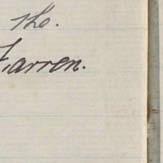 tho.
Farren.